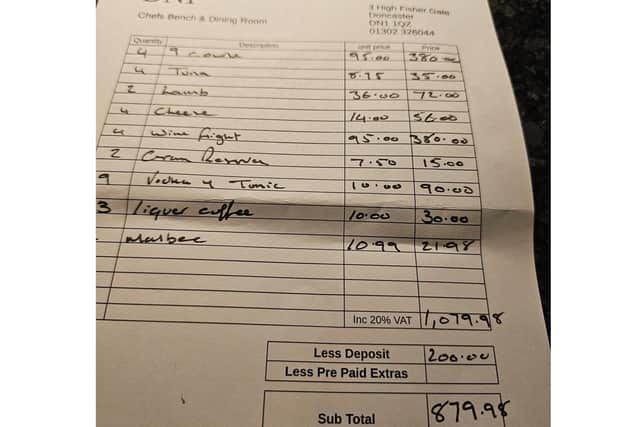 Chefs Bench & Dining Room
3 High Fisher Gate
Doncaster
DN1 1QZ
01302 326044
Quantity Description unit price Price
4 9 course 95.00 380.00
4 Tuna 8.75 35.00
2 Lamb 36.00 72.00
4 Cheese 14.00 56.00
4 Wine flight 95.00 380.00
2 7.50 15.00
9 Vodka 4 Tonic 10.00 90.00
3 liquer coffee 10.00 30.00
malbec 10.99 21.98
Inc 20% VAT 1,079.98
Less Deposit 200.00
Less Pre Paid Extras
Sub Total 879.98